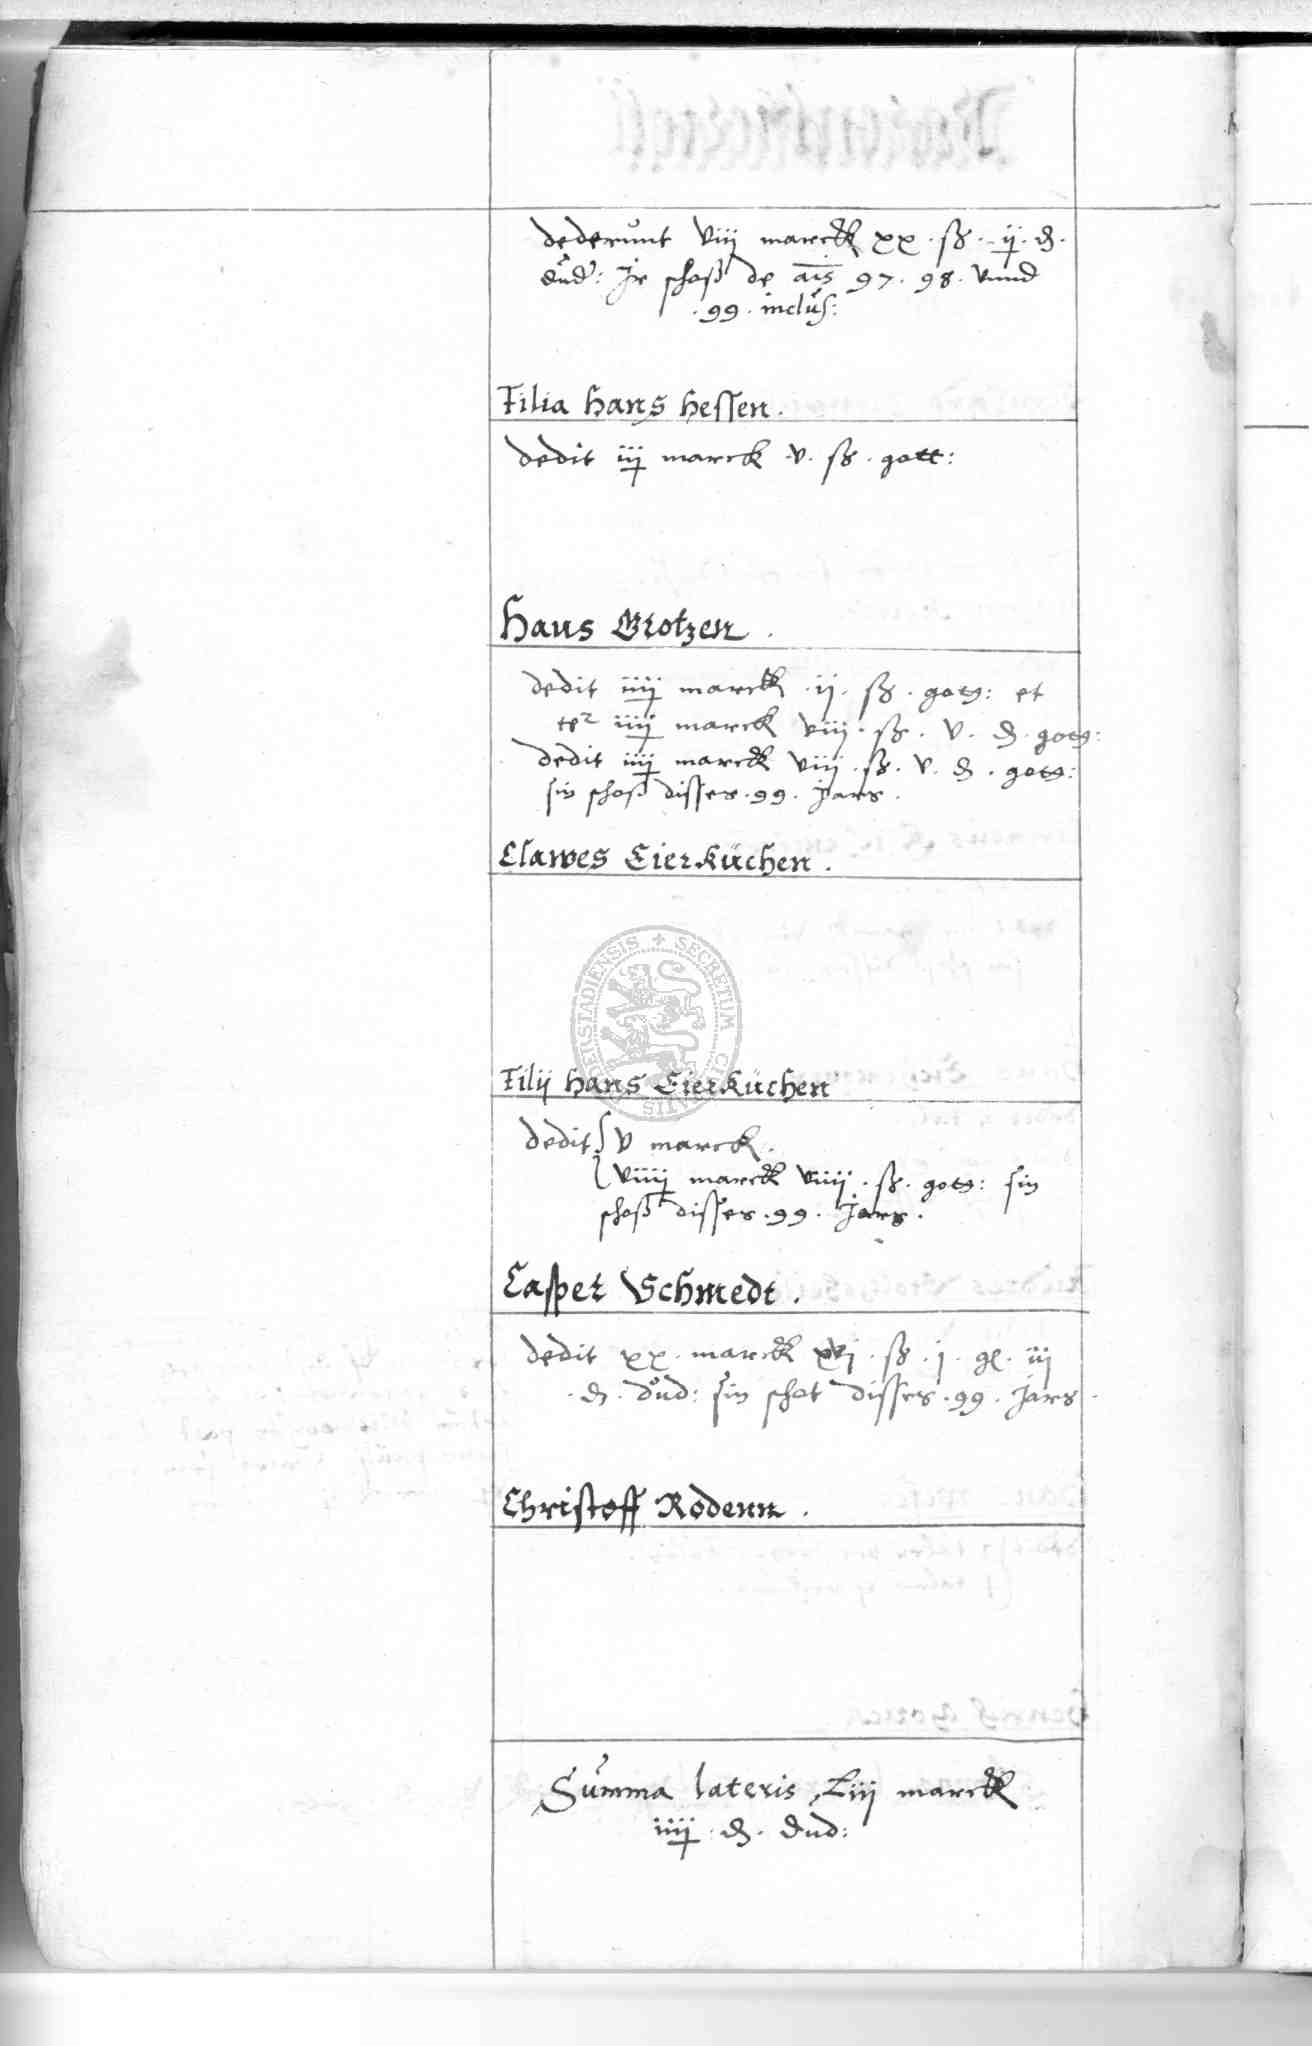 dederunt viij marck xx . ß . ij . d .
dud: Ir schoß de ais 97 . 98 . vnnd
. 99 . inclus:
Filia Hans Hessen .
dedit iij marck .v. ß . gott:
Hans Grotzen .
dedit iiij marck .ij. ß . gotg: et
iiij marck viij . ß . v . d . gotg:
dedit iiij marck viij . ß . v . d . gotg:
sin schoß disses . 99 . Jars .
Clawes Eierküchen .
Filij Hans Eierküchen
dedit { v marck .
{ viiij marck viiij . ß . gotg: sin
schoß disses . 99 . Jars .
Casper Schmedt .
dedit xx . marck xvj . ß . j . gl . iij
. d . dud: sin schot disses . 99 . Jars .
Christoff Rodenn .
Summa lateris Liij marck
iiij . d . dud:
SECRETUM